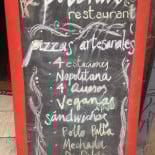 restaurant
pizzas artesanales
4 estaciones
Napolitana
4 Quesos
Veganas
sándwiches
Pollo Palta
Mechada